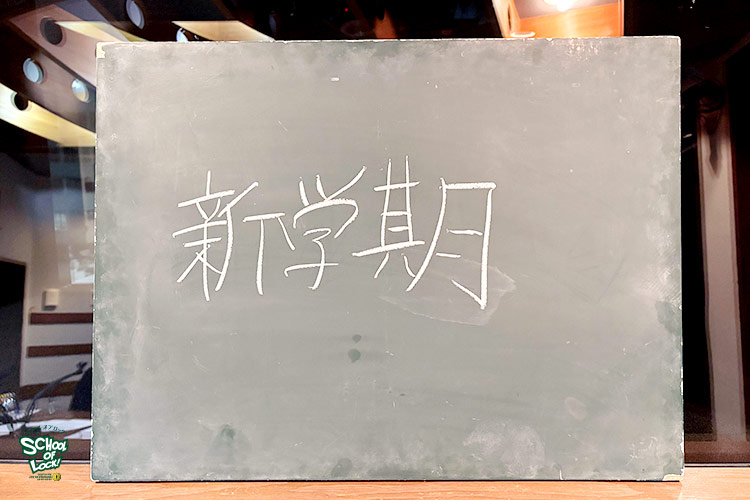 新学期
SCHOOL
OF
LOCK!